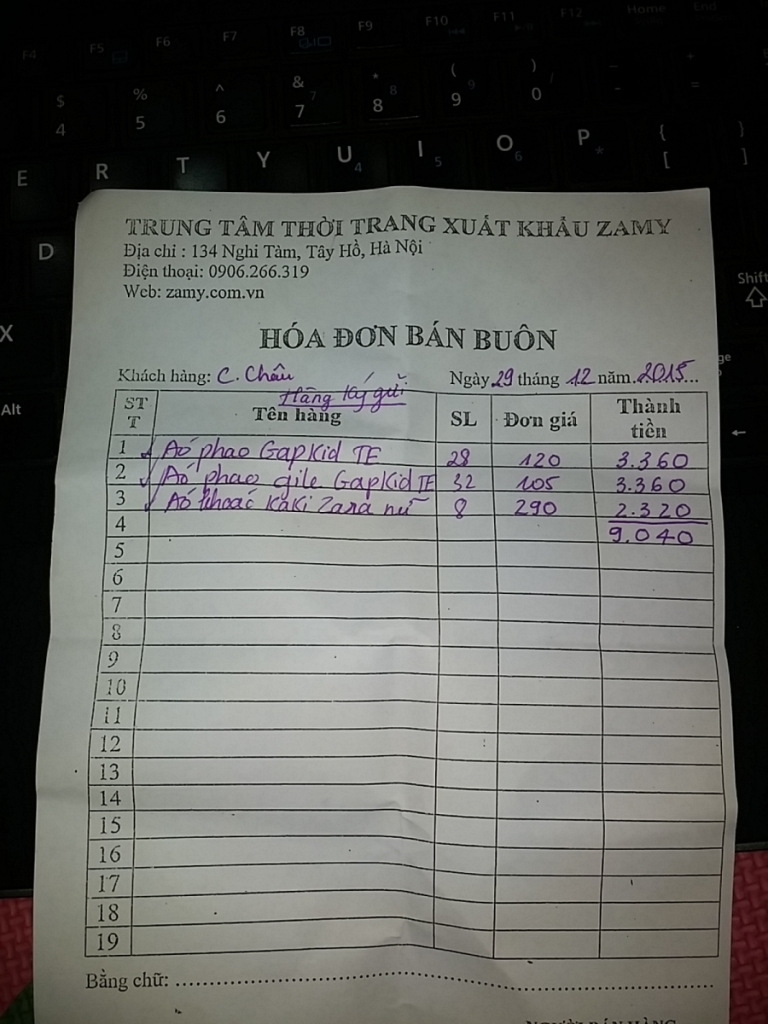 F4 F5 F6 F7 F8 F9 F10 F11 F12 Home End
$ 4 % 5 ^ 6 & 7 7 * 8 8 ( 9 9 ) 0 / - =
E R T Y U 4 I 5 O 6 P * { [ } ]
D
X
Alt
Shift
TRUNG TÂM THỜI TRANG XUẤT KHẨU ZAMY
Địa chỉ : 134 Nghi Tàm, Tây Hồ, Hà Nội
Điện thoại: 0906.266.319
Web: zamy.com.vn
HÓA ĐƠN BÁN BUÔN
Khách hàng: C. Châu Ngày 29 tháng 12 năm 2015...
Hàng ký gửi
STT Tên hàng SL Đơn giá Thành tiền
1 Áo phao GapKid TE 28 120 3.360
2 Áo phao gile GapKid TE 32 105 3.360
3 Áo khoác kaki Zara nữ 8 290 2.320
4 9.040
5
6
7
8
9
10
11
12
13
14
15
16
17
18
19
Bằng chữ: ........................................
NGƯỜI BÁN HÀNG